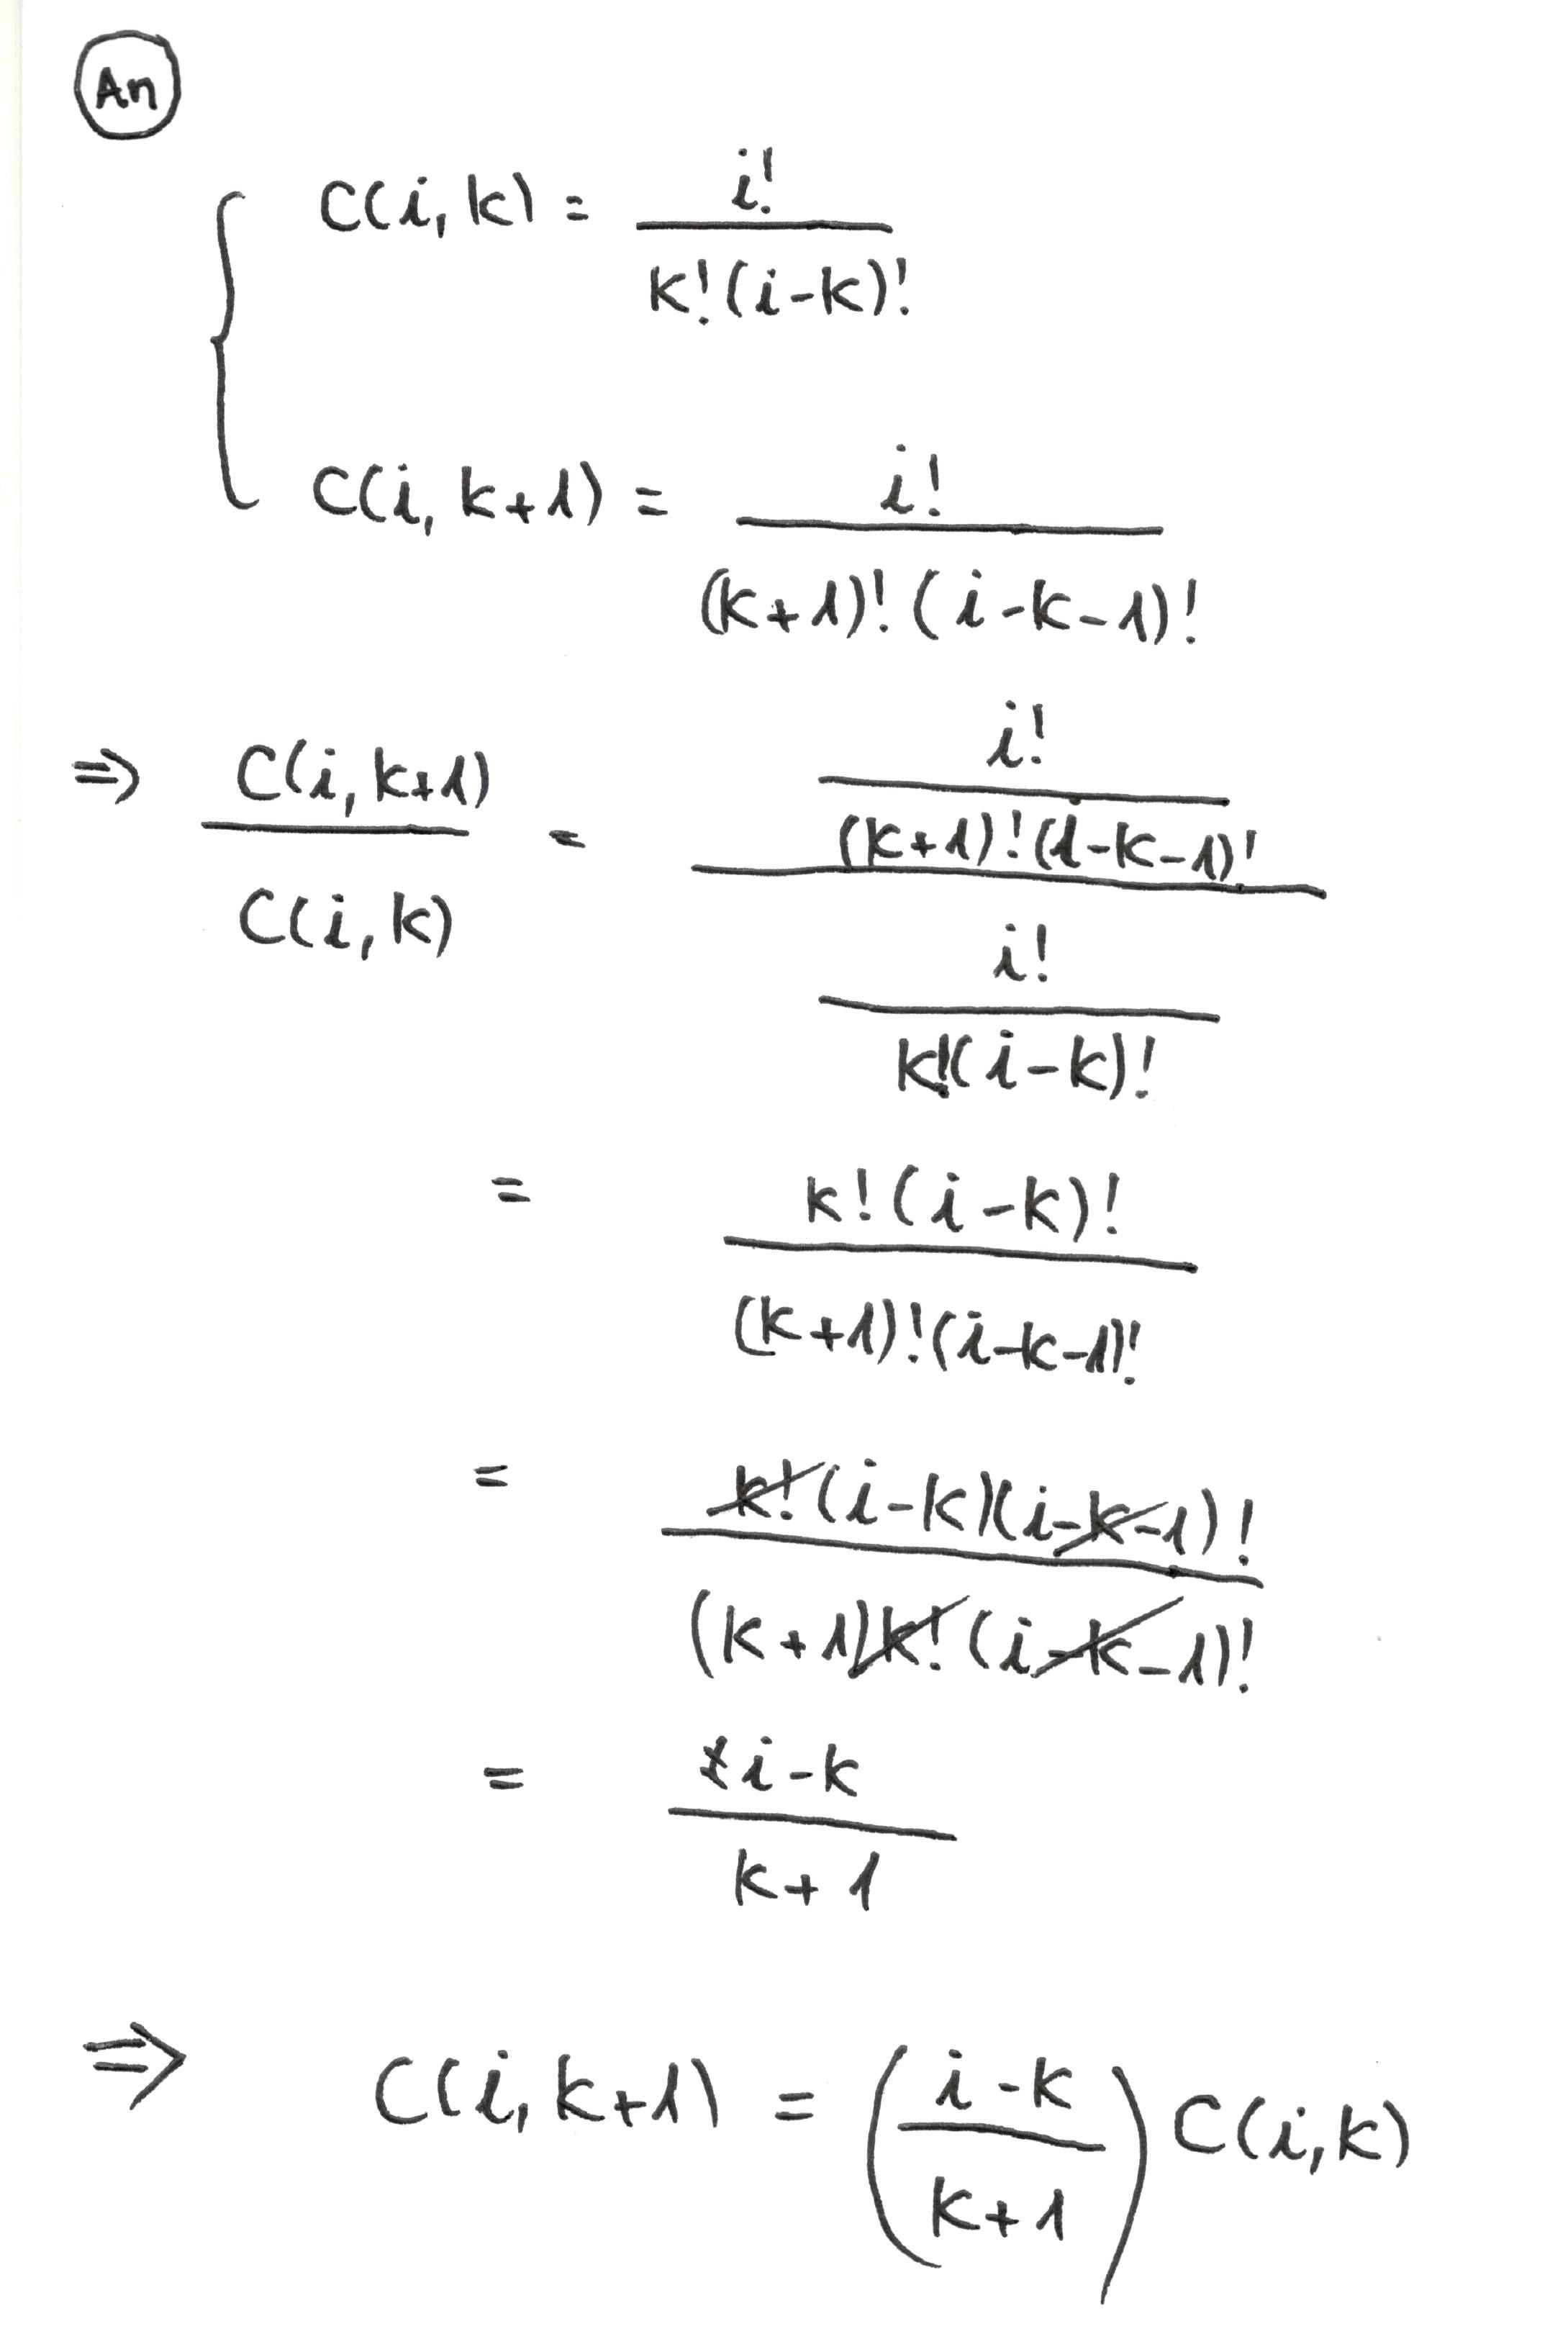 An
C(i, k) = i! / k!(i-k)!
C(i, k+1) = i! / (k+1)!(i-k-1)!
=> C(i, k+1) / C(i, k) = i! / (k+1)!(i-k-1)! / i! / k!(i-k)!
= k!(i-k)! / (k+1)!(i-k-1)!
= k!(i-k)(i-k-1)! / (k+1)k!(i-k-1)!
= i-k / k+1
=> C(i, k+1) = (i-k / k+1) C(i, k)